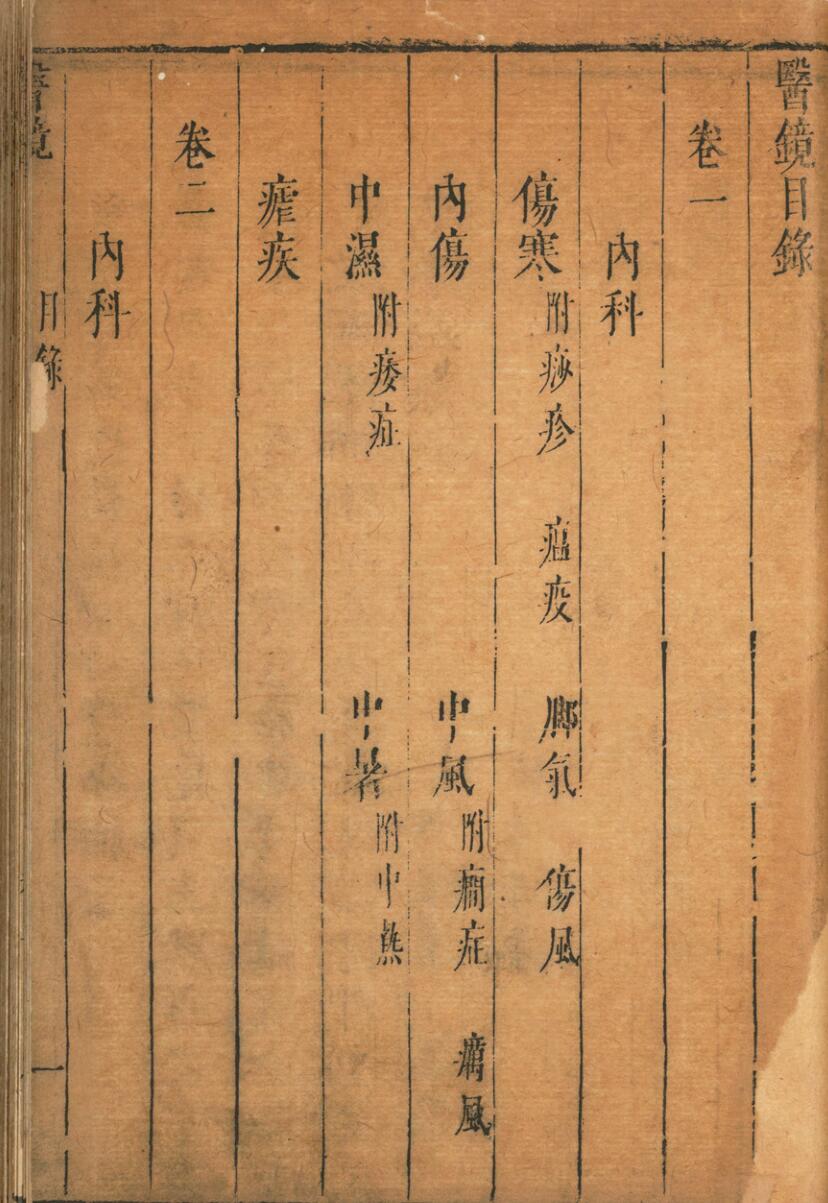 醫鏡目錄
卷一
內科
傷寒 附痧疹 瘟疫 腳氣 傷風
內傷 中風 附癇症 癘風
中濕 附痿症 中暑 附中熱
瘧疾
卷二
內科
醫鏡 目錄 一